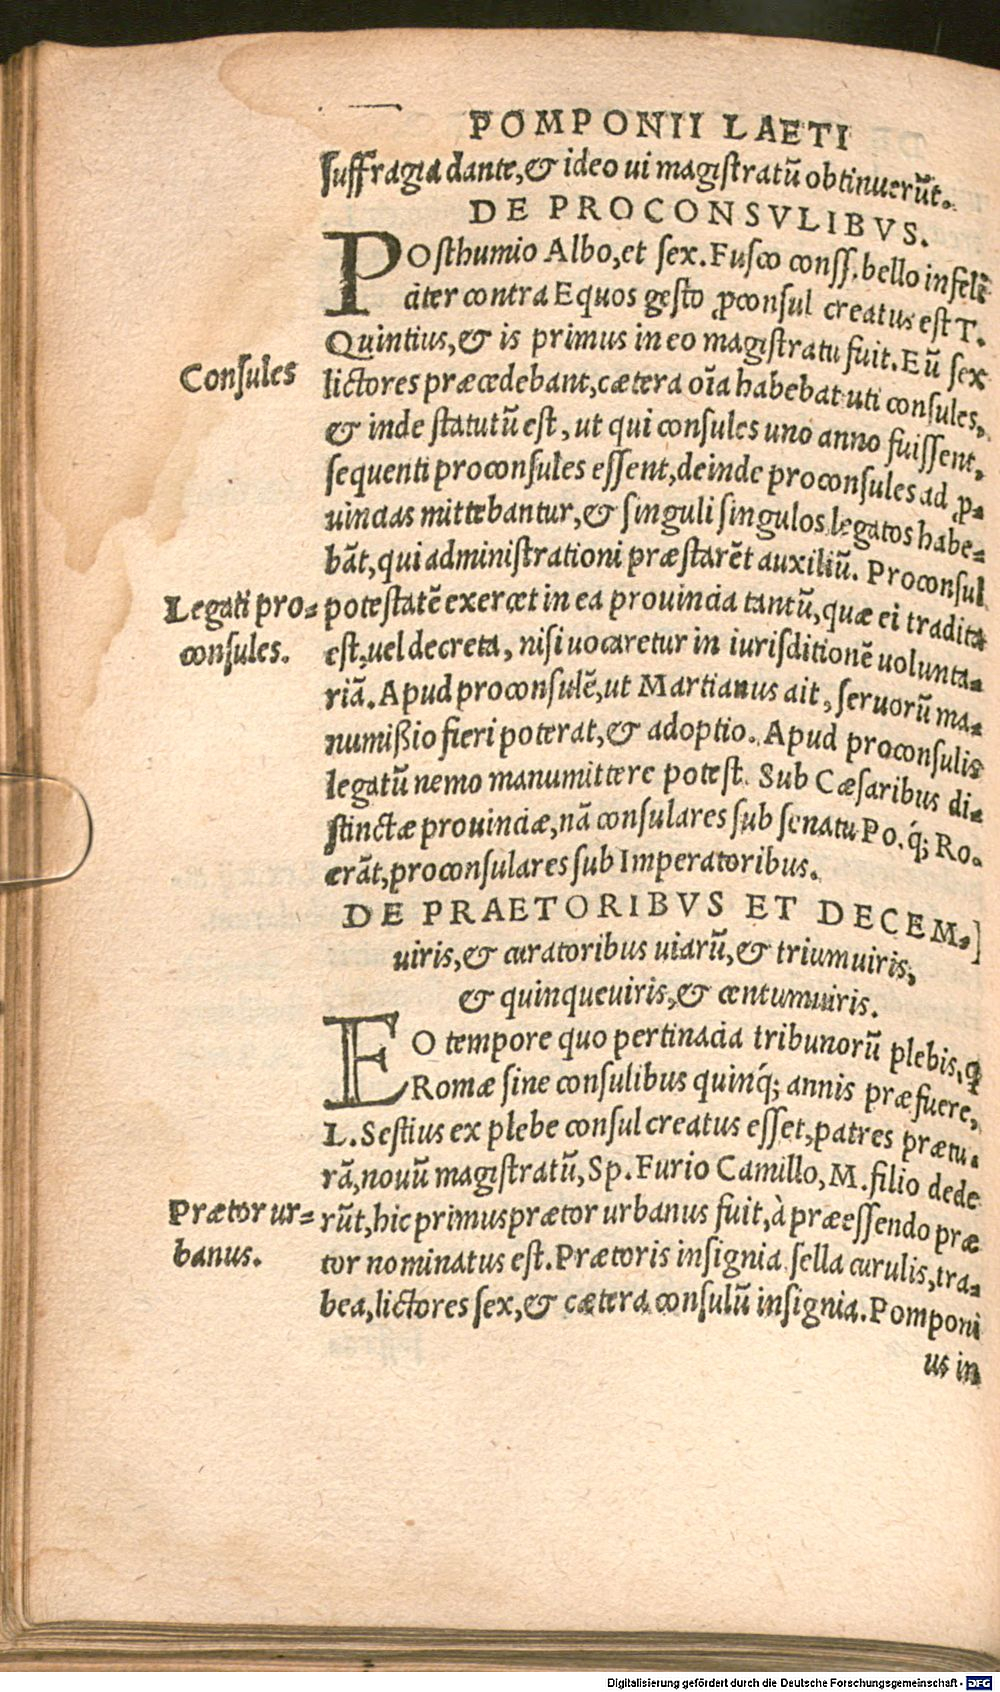 POMPONII LAETI
suffragia dante, & ideo ui magistratū obtinuerūt.
DE PROCONSVLIBVS.
POsthumio Albo, et sex. Fusco conss. bello infeli
citer contra Equos gesto ꝓconsul creatus est T.
Quintius, & is primus in eo magistratu fuit. Eū sex
Consules
lictores præcedebant, cætera oīa habebat uti consules,
& inde statutū est, ut qui consules uno anno fuissent,
sequenti proconsules essent, deinde proconsules ad ꝓ-
uincias mittebantur, & singuli singulos legatos habe-
bāt, qui administrationi præstarēt auxiliū. Proconsul
Legati pro-
consules.
potestatē exercet in ea prouincia tantū, quæ ei tradita
est, uel decreta, nisi uocaretur in iurisditionē uolunta-
riā. Apud proconsulē, ut Martianus ait, seruorū ma-
numißio fieri poterat, & adoptio. Apud proconsulis
legatū nemo manumittere potest. Sub Cæsaribus di-
stinctæ prouinciæ, nā consulares sub senatu Po. q́; Ro.
erāt, proconsulares sub Imperatoribus.
DE PRAETORIBVS ET DECEM-]
uiris, & curatoribus uiarū, & triumuiris,
& quinqueuiris, & centumuiris.
EO tempore quo pertinacia tribunorū plebis, ꝙ
Romæ sine consulibus quinq́; annis præfuere,
L. Sestius ex plebe consul creatus esset, patres prætu-
rā, nouū magistratū, Sp. Furio Camillo, M. filio dede
Prætor ur-
banus.
rūt, hic primus prætor urbanus fuit, à præessendo præ
tor nominatus est. Prætoris insignia sella curulis, tra-
bea, lictores sex, & cætera consulū insignia. Pomponi
us in
Digitalisierung gefördert durch die Deutsche Forschungsgemeinschaft - DFG